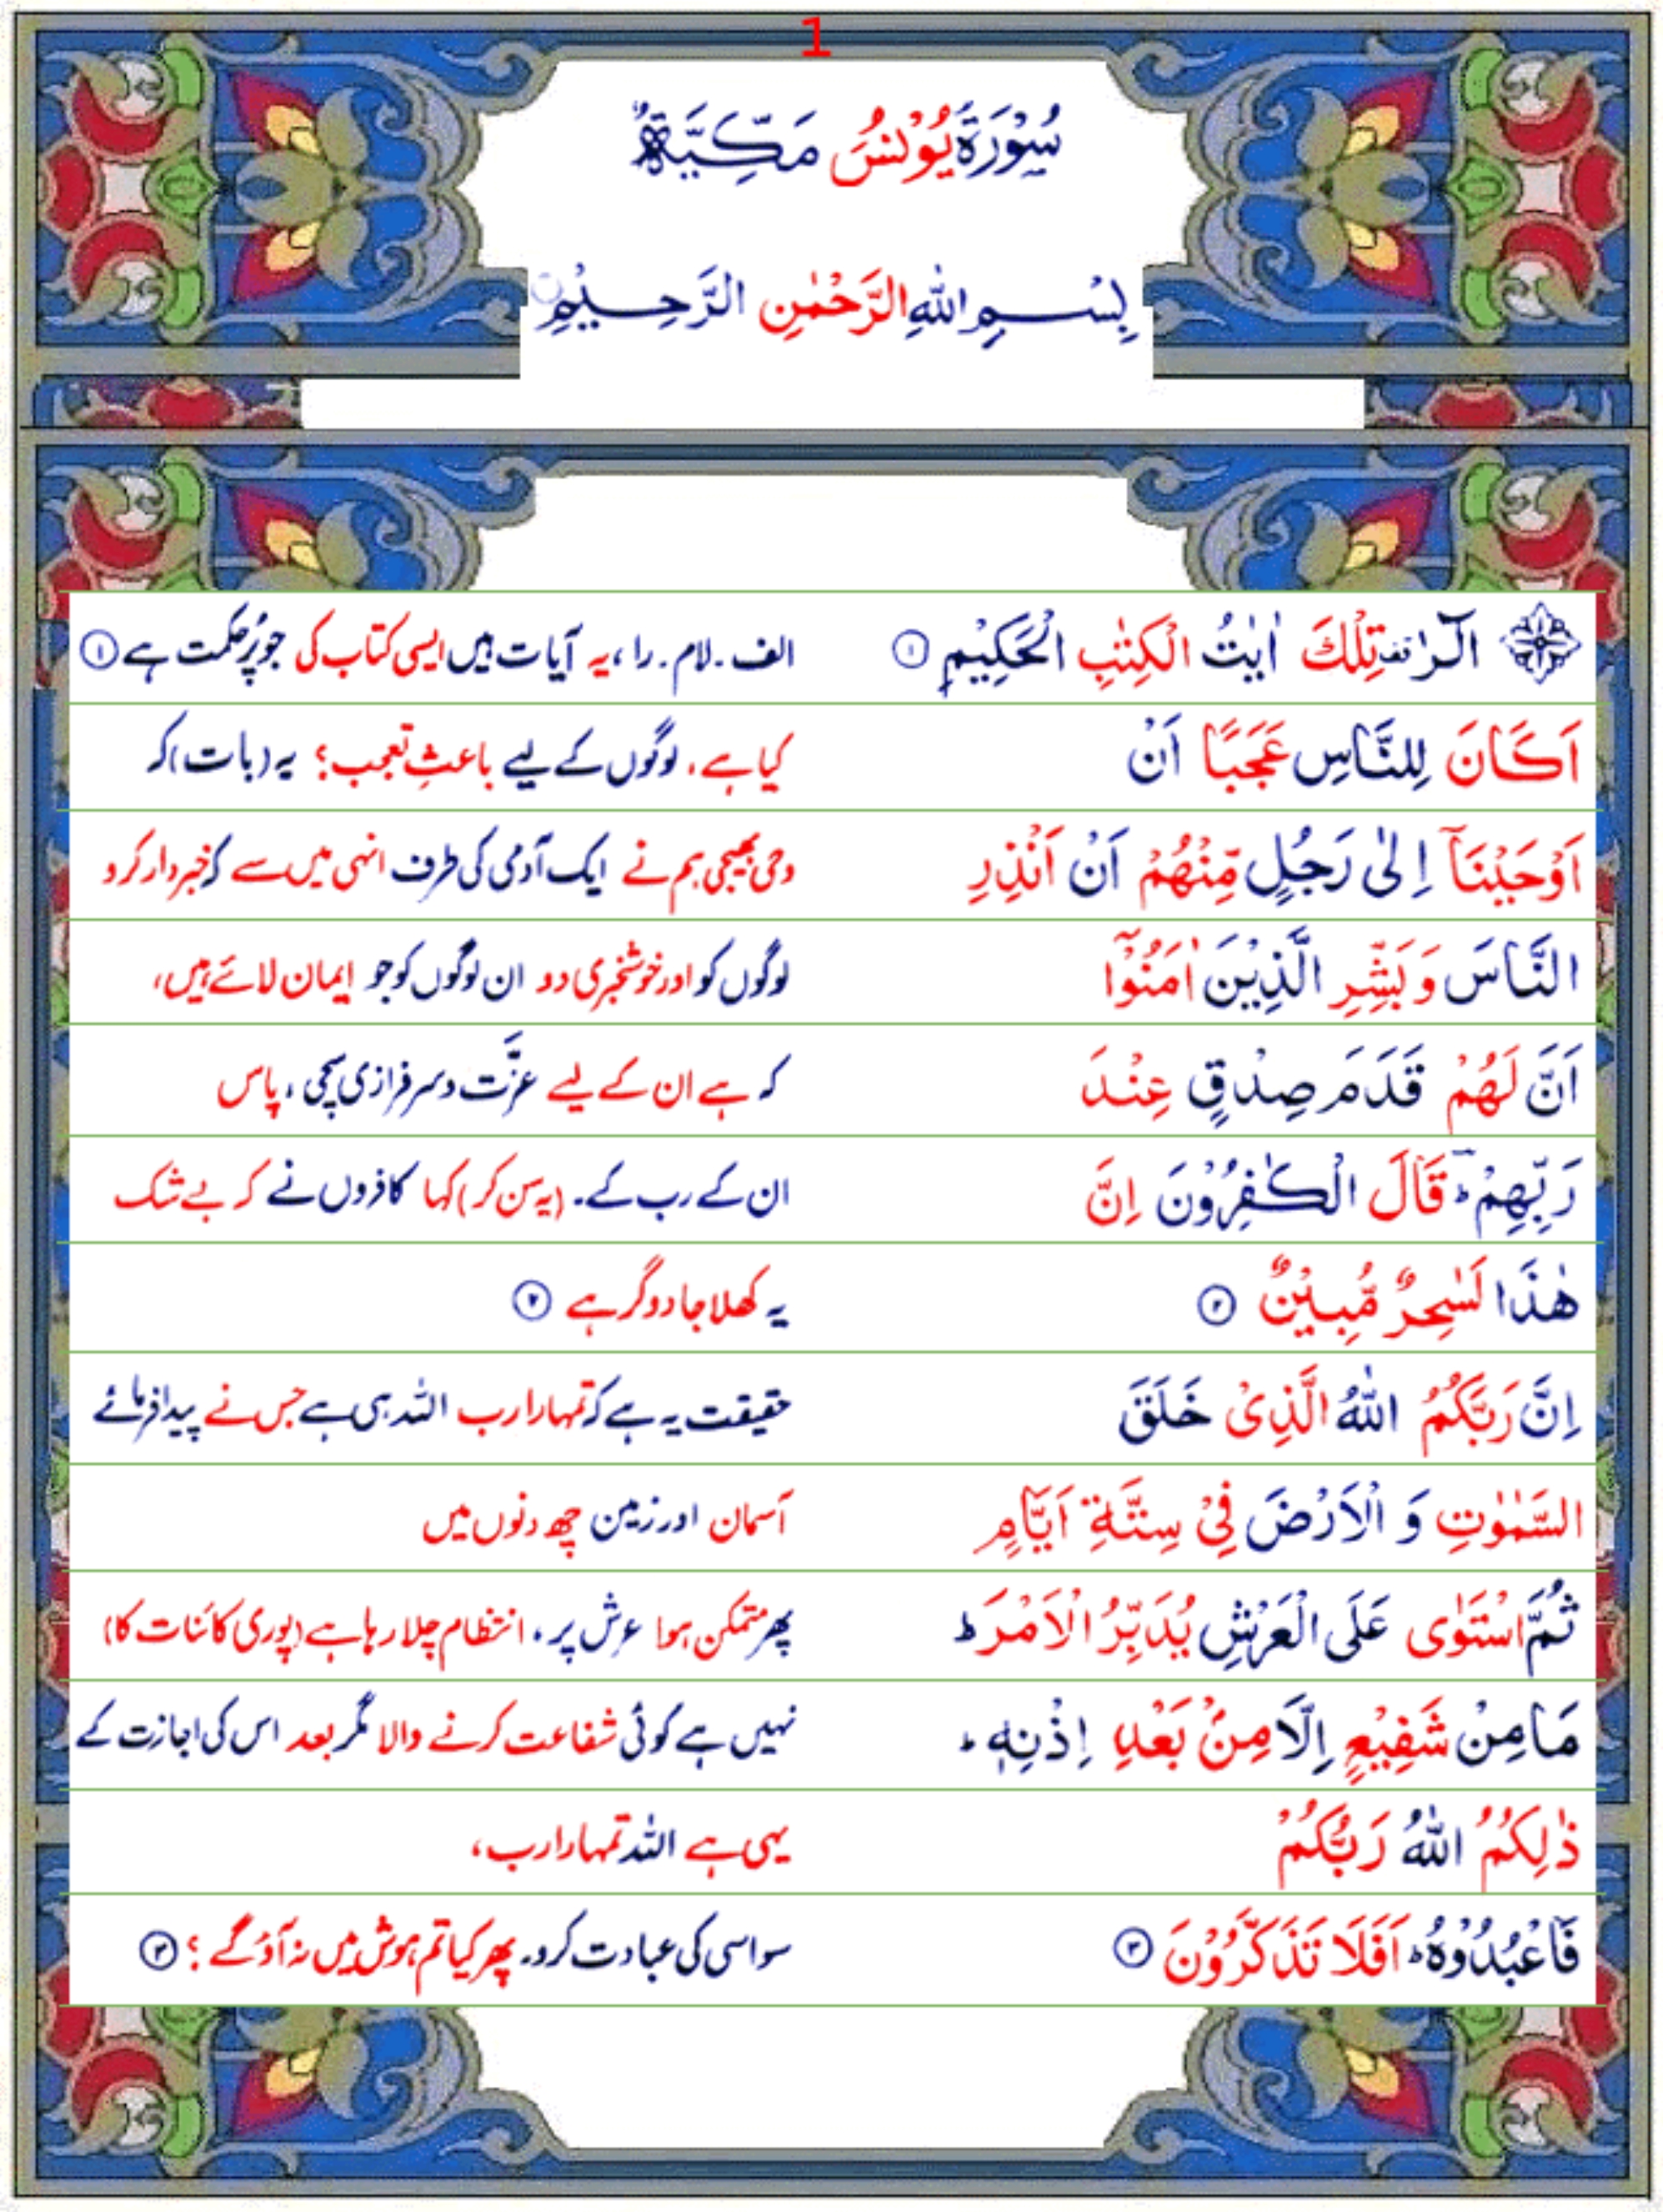 1
سُوْرَةُ يُوْنُسَ مَكِّيَّةٌ
بِسْمِ اللّٰهِ الرَّحْمٰنِ الرَّحِيْمِ
الٓرٰ تِلْكَ اٰيٰتُ الْكِتٰبِ الْحَكِيْمِ ۱ الف۔لام۔را، یہ آیات ہیں ایسی کتاب کی جو پُرحکمت ہے ۱
اَكَانَ لِلنَّاسِ عَجَبًا اَنْ کیا ہے، لوگوں کے لیے باعثِ تعجب؟ یہ (بات) کہ
اَوْحَيْنَاۤ اِلٰى رَجُلٍ مِّنْهُمْ اَنْ اَنْذِرِ وحی بھیجی ہم نے ایک آدمی کی طرف انہی میں سے کہ خبردار کرو
النَّاسَ وَ بَشِّرِ الَّذِيْنَ اٰمَنُوْۤا لوگوں کو اور خوشخبری دو ان لوگوں کو جو ایمان لائے ہیں،
اَنَّ لَهُمْ قَدَمَ صِدْقٍ عِنْدَ کہ ہے ان کے لیے عزّت و سرفرازی سچی، پاس
رَبِّهِمْ ؕ قَالَ الْكٰفِرُوْنَ اِنَّ ان کے رب کے۔ (یہ سن کر) کہا کافروں نے کہ بے شک
هٰذَا لَسٰحِرٌ مُّبِيْنٌ ۲ یہ کھلا جادوگر ہے ۲
اِنَّ رَبَّكُمُ اللّٰهُ الَّذِىْ خَلَقَ حقیقت یہ ہے کہ تمہارا رب اللہ ہی ہے جس نے پیدا فرمائے
السَّمٰوٰتِ وَ الْاَرْضَ فِىْ سِتَّةِ اَيَّامٍ آسمان اور زمین چھ دنوں میں
ثُمَّ اسْتَوٰى عَلَى الْعَرْشِ يُدَبِّرُ الْاَمْرَ ؕ پھر متمکن ہوا عرش پر، انتظام چلا رہا ہے (پوری کائنات کا)
مَا مِنْ شَفِيْعٍ اِلَّا مِنْۢ بَعْدِ اِذْنِهٖ ؕ نہیں ہے کوئی شفاعت کرنے والا مگر بعد اس کی اجازت کے
ذٰلِكُمُ اللّٰهُ رَبُّكُمْ یہی ہے اللہ تمہارا رب،
فَاعْبُدُوْهُ ؕ اَفَلَا تَذَكَّرُوْنَ ۳ سو اسی کی عبادت کرو۔ پھر کیا تم ہوش میں نہ آؤ گے؟ ۳